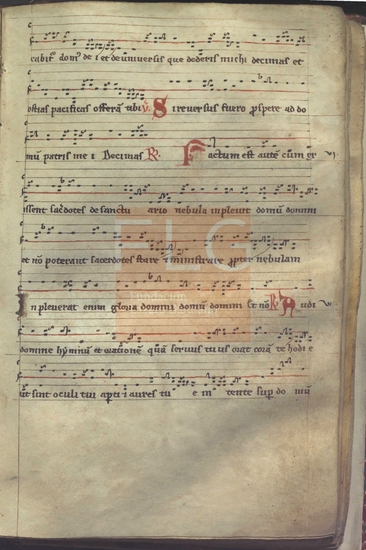 cabit᷒ dom᷒ de i et de universis que dederis michi decimas et
ostias pacificas offerā tibi ℣. Si reversus fuero p̱spere ad do
mū patris me i Decimas ℟. Factum est autē cūm ex
issent sac̄dotes de sanctu ario nebula inplevit domū domini
et nō poterant sacerdotes stare & ministrare p̱pter nebulam
In pleverat enim gloria domini domū domini Et nō ℟. Audi
domine hymnū et oratiōnē quā servus tuus orat corā te hodi e
ut sint oculi tui ap̱ti i aures tu e in tente sup̱ do mū